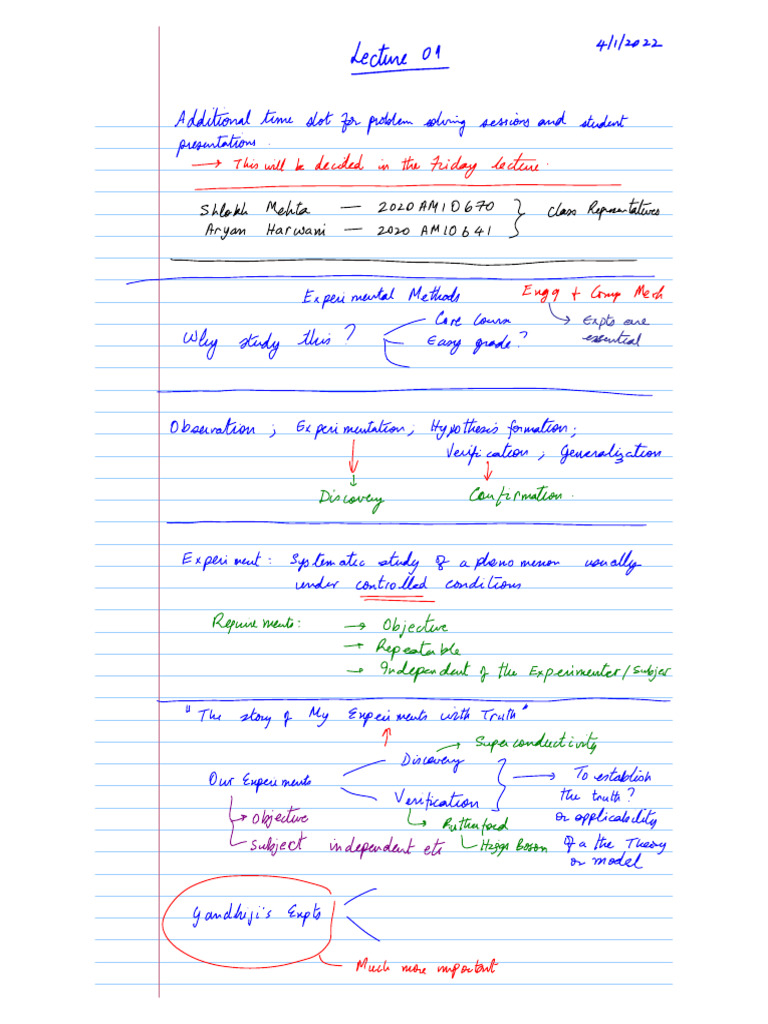 Lecture 01
4/1/2022
Additional time slot for problem solving sessions and student
presentations.
→ This will be decided in the Friday lecture.
Shlokh Mehta — 2020AM10670
Aryan Harwani — 2020 AM10641
} Class Representatives
Experimental Methods
Engg + Comp Mech
↳ Expts are
essential
Why study this?
Core Course
Easy grade?
Observation; Experimentation; Hypothesis formation;
Verification; Generalization
Discovery
Confirmation.
Experiment: Systematic study of a phenomenon usually
under controlled conditions
Requirements: → Objective
→ Repeatable
→ Independent of the Experimenter/Subject
"The story of My Experiments with Truth"
Our Experiments
Discovery → Superconductivity
Verification
↳ Rutherford
↳ Higgs Boson
→ To establish
the truth?
or applicability
of a the Theory
or model
↳ Objective
↳ Subject independent etc
Gandhiji's Expts
Much more important